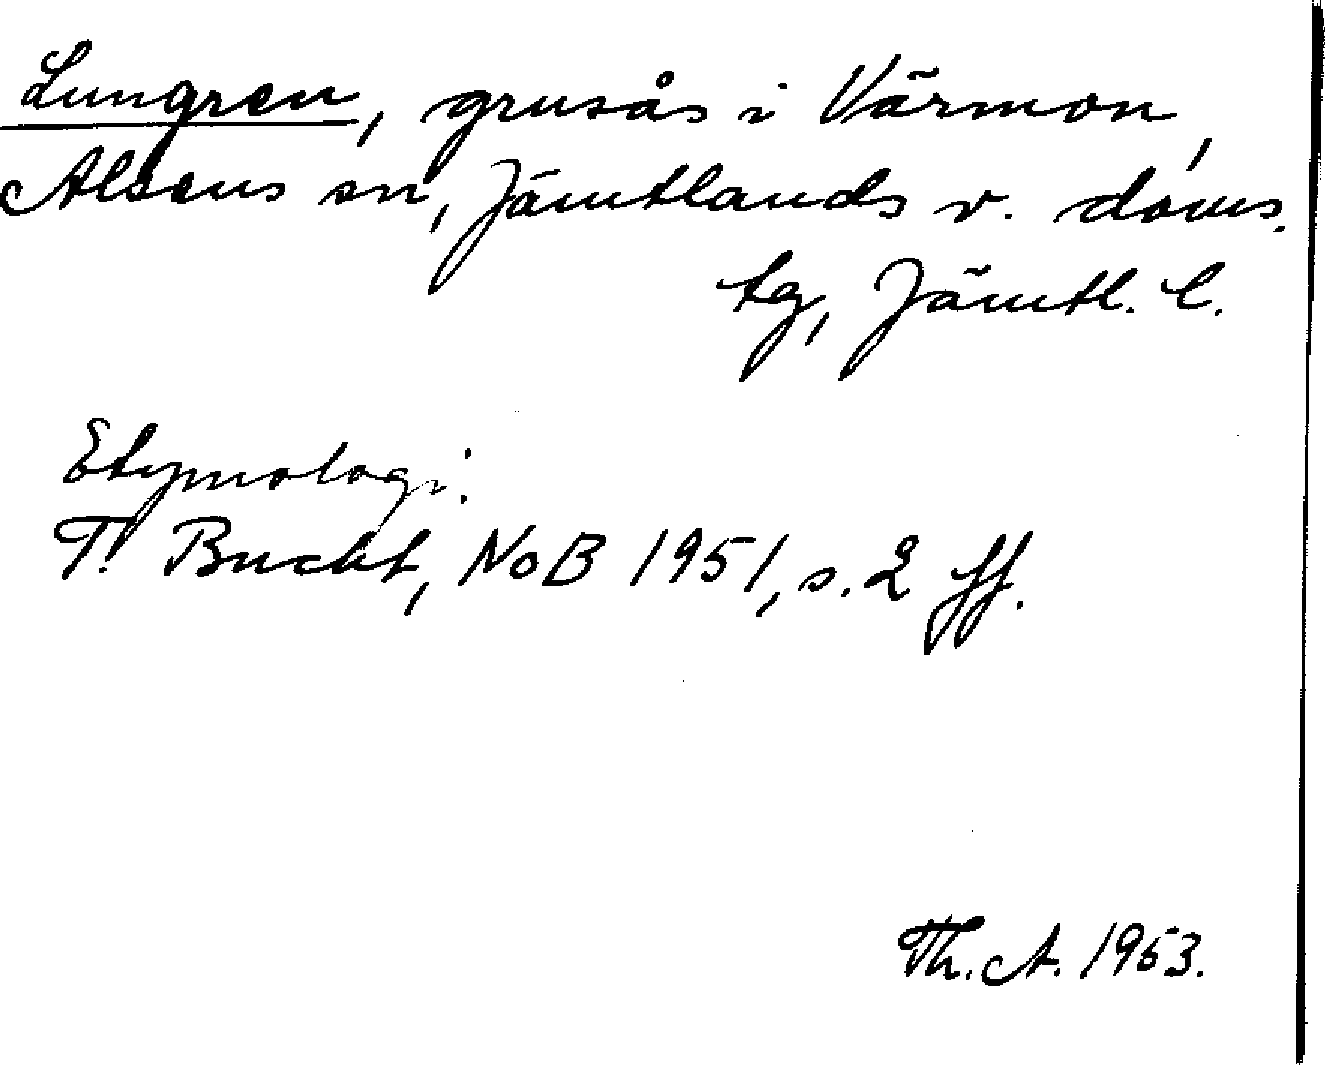 Lungren, grusås i Värmon,
Alsens sn, Jämtlands v. doms.
tg, Jämtl. l.
Etymologi:
T. Bucht, NoB 1951, s. 2 ff.
Th. A. 1953.